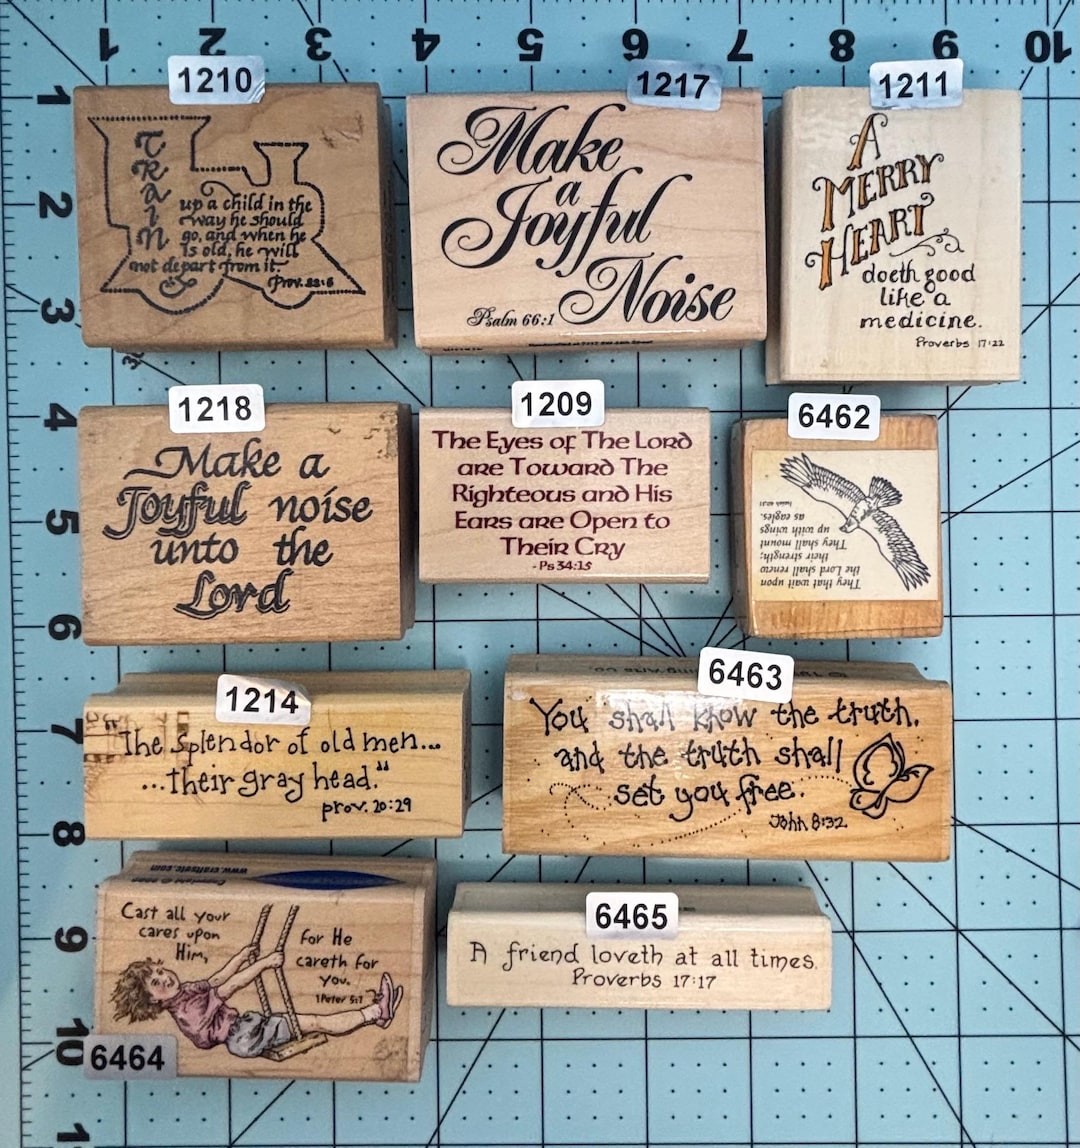 1 2 3 4 5 6 7 8 9 10
1
2
3
4
5
6
7
8
9
10
1210
TRAIN
up a child in the
way he should
go, and when he
is old, he will
not depart from it.
Prov. 22:6
1217
Make
a
Joyful
Noise
Psalm 66:1
1211
A
MERRY
HEART
doeth good
like a
medicine.
Proverbs 17:22
1218
Make a
Joyful noise
unto the
Lord
1209
The Eyes of The Lord
are Toward The
Righteous and His
Ears are Open to
Their Cry
- Ps 34:15
6462
They that wait upon
the Lord shall renew
their strength;
They shall mount
up with wings
as eagles.
Isaiah 40:31
1214
"The Splendor of old men...
...their gray head."
prov. 20:29
6463
You shall know the truth,
and the truth shall
set you free.
John 8:32
6464
www.craftsetc.com
Cast all your
cares upon
Him,
for He
careth for
you.
1 Peter 5:7
6465
A friend loveth at all times.
Proverbs 17:17